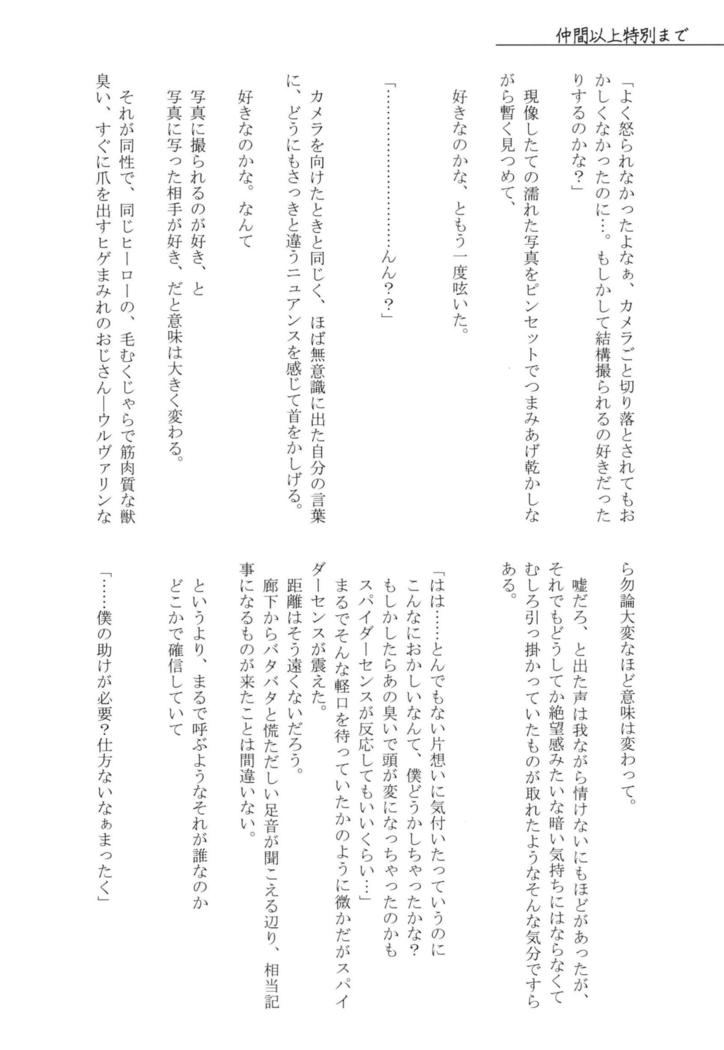 仲間以上特別まで
「よく怒られなかったよなぁ、カメラごと切り落とされてもお
かしくなかったのに…。もしかして結構撮られるの好きだった
りするのかな？」
現像したての濡れた写真をピンセットでつまみあげ乾かしな
がら暫く見つめて、
好きなのかな、ともう一度呟いた。
「…………………………んん？？」
カメラを向けたときと同じく、ほぼ無意識に出た自分の言葉
に、どうにもさっきと違うニュアンスを感じて首をかしげる。
好きなのかな。なんて
写真に撮られるのが好き、と
写真に写った相手が好き、だと意味は大きく変わる。
それが同性で、同じヒーローの、毛むくじゃらで筋肉質な獣
臭い、すぐに爪を出すヒゲまみれのおじさん―ウルヴァリンな
ら勿論大変なほど意味は変わって。
嘘だろ、と出た声は我ながら情けないにもほどがあったが、
それでもどうしてか絶望感みたいな暗い気持ちにはならなくて
むしろ引っ掛かっていたものが取れたようなそんな気分ですら
ある。
「はは……とんでもない片想いに気付いたっていうのに
こんなにおかしいなんて、僕どうかしちゃったかな？
もしかしたらあの臭いで頭が変になっちゃったのかも
スパイダーセンスが反応してもいいくらい…」
まるでそんな軽口を待っていたかのように微かだがスパイ
ダーセンスが震えた。
距離はそう遠くないだろう。
廊下からバタバタと慌ただしい足音が聞こえる辺り、相当記
事になるものが来たことは間違いない。
というより、まるで呼ぶようなそれが誰なのか
どこかで確信していて
「……僕の助けが必要？仕方ないなぁまったく」